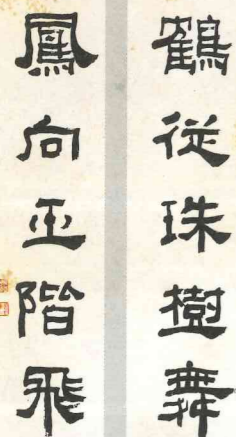 鶴從珠樹舞
鳳向玉階飛